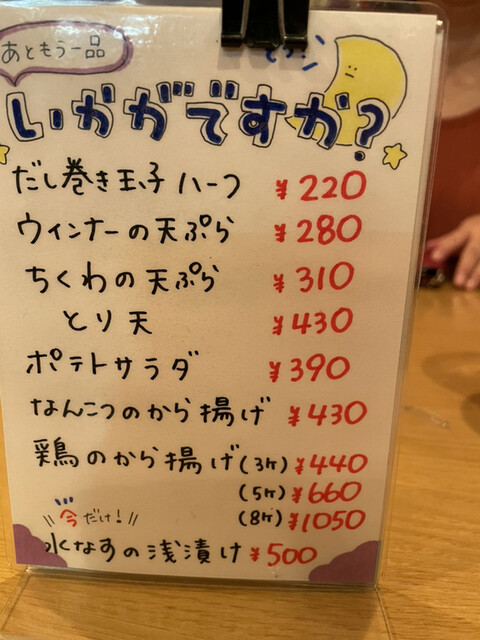 あともう一品
いかがですか?
だし巻き玉子ハーフ ¥220
ウィンナーの天ぷら ¥280
ちくわの天ぷら ¥310
とり天 ¥430
ポテトサラダ ¥390
なんこつのから揚げ ¥430
鶏のから揚げ(3ヶ) ¥440
(5ヶ) ¥660
(8ヶ) ¥1050
\\今だけ!//
水なすの浅漬け ¥500